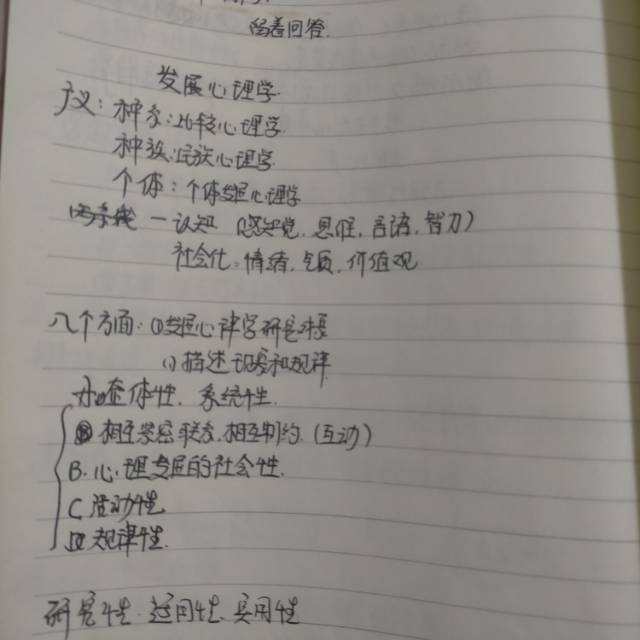 完善回答.
发展心理学
广义: 种系: 比较心理学
种族: 民族心理学
个体: 个体发展心理学
一认知 (感知觉. 思维. 言语. 智力)
社会化: 情绪. 气质. 价值观
八个方面: ①发展心理学研究
(1) 描述 和规律
整体性. 系统性.
相互紧密联系. 相互制约. (互动)
B. 心理发展的社会性.
C 活动性
D 规律性.
研究性. 适用性. 实用性